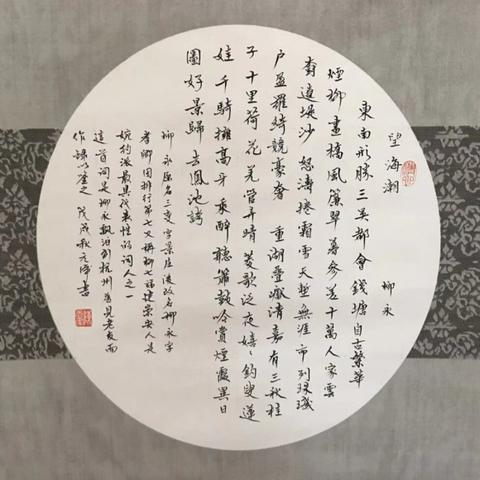 望海潮
柳永
東南形勝三吴都會錢塘自古繁華
煙柳畫橋風簾翠幕參差十萬人家雲
樹遶堤沙怒濤捲霜雪天塹無涯市列珠璣
户盈羅綺競豪奢重湖疊巘清嘉有三秋桂
子十里荷花羌管弄晴菱歌泛夜嬉〻釣叟蓮
娃千騎擁高牙乘醉聽簫鼓吟賞煙霞異日
圖好景歸去鳳池誇
柳永原名三變字景莊後改名柳永字
耆卿因排行第七又稱柳七福建崇安人是
婉約派最具代表性的詞人之一
這首詞是柳永漂泊到杭州為見老友而
作 戊戌秋元書